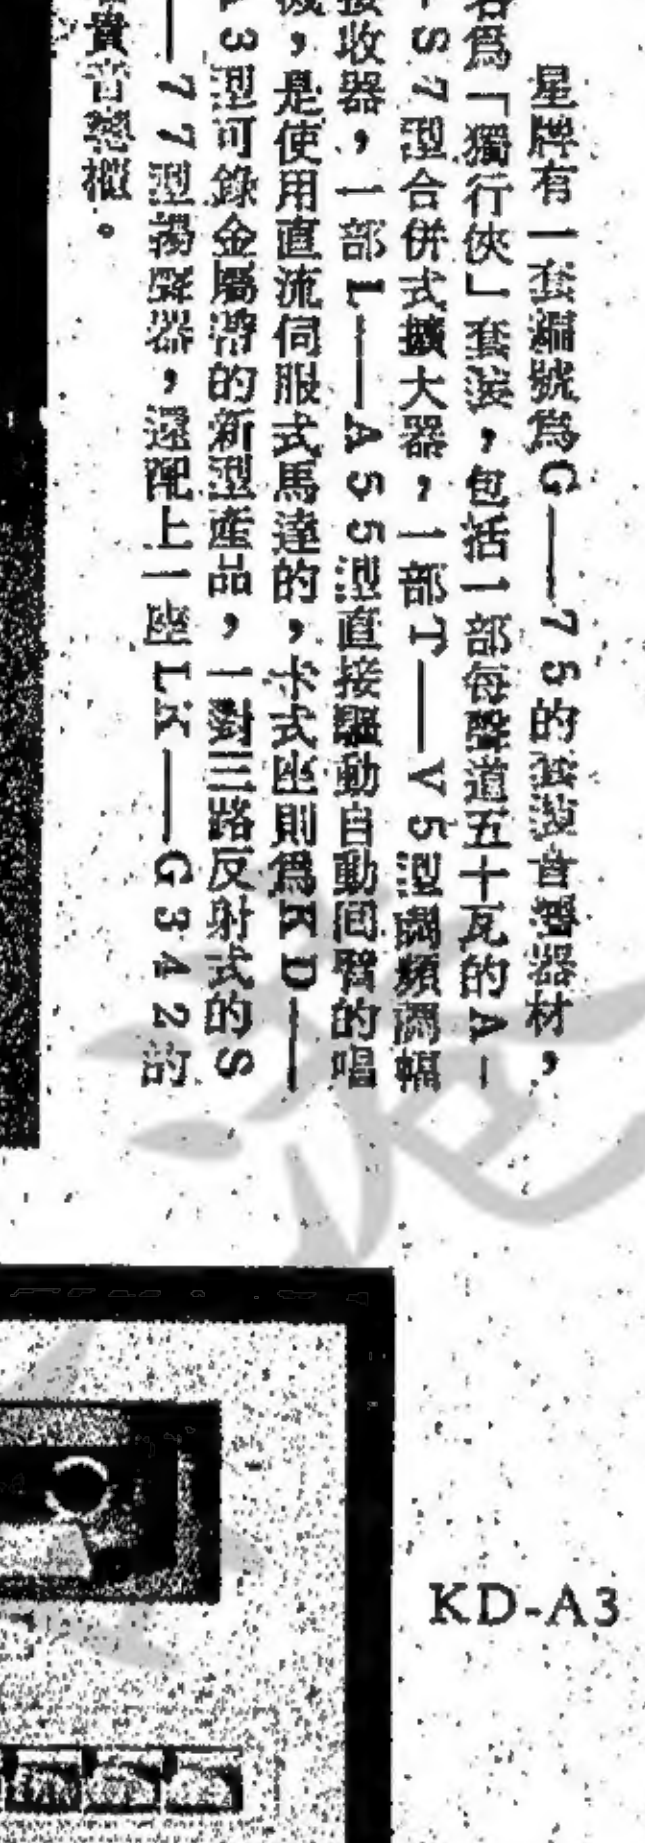 星牌有一套編號爲G——75的套裝音響器材，
名爲「獨行俠」套裝，包括一部每聲道五十瓦的A—
—S7型合併式擴大器，一部T——V5型調頻調幅
接收器，一部L——A55型直接驅動自動回臂的唱
機，是使用直流伺服式馬達的，卡式座則爲KD——
A3型可錄金屬帶的新型產品，一對三路反射式的S
——77型揚聲器，還配上一座LK——G342的
貴音響櫃。
KD-A3